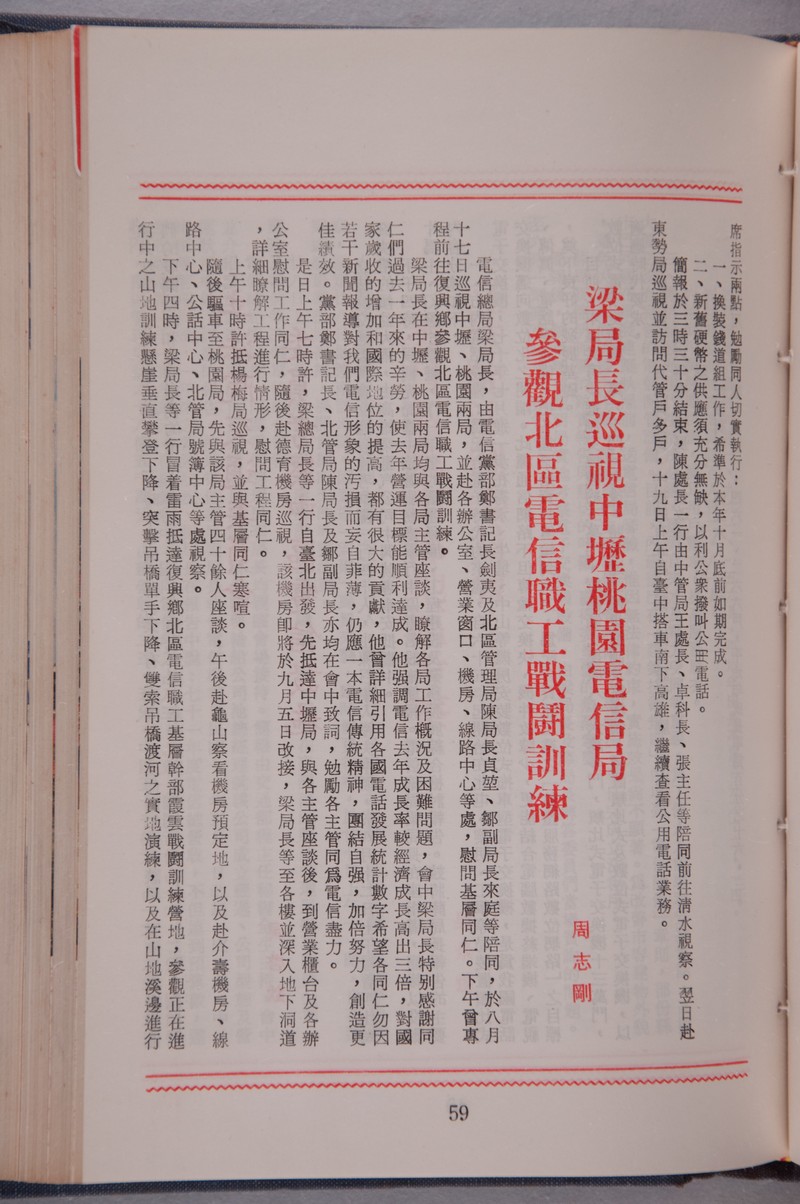 席指示兩點，勉勵同人切實執行：
一、換裝錢道組工作，希準於本年十月底前如期完成。
二、新舊硬幣之供應須充分無缺，以利公衆撥叫公用電話。
簡報於三時三十分結束，陳處長一行由中管局王處長、卓科長、張主任等陪同前往清水視察。翌日赴
東勢局巡視並訪問代管戶多戶，十九日上午自臺中搭車南下高雄，繼續查看公用電話業務。
梁局長巡視中壢桃園電信局
參觀北區電信職工戰鬪訓練
周志剛
電信總局梁局長，由電信黨部鄭書記長劍夷及北區管理局陳局長貞堃、鄒副局長來庭等陪同，於八月
十七日巡視中壢、桃園兩局，並赴各辦公室、營業窗口、機房、線路中心等處，慰問基層同仁。下午曾專
程前往復興鄉參觀北區電信職工戰鬪訓練。
梁局長在中壢、桃園兩局均與各局主管座談，瞭解各局工作概況及困難問題，會中梁局長特別感謝同
仁們過去一年來的辛勞，使去年營運目標能順利達成。他强調電信去年成長率較經濟成長高出三倍，對國
家歲收的增加和國際地位的提高，都有很大的貢獻，他曾詳細引用各國電話發展統計數字希望各同仁勿因
若干新聞報導對我們電信形象的汚損而妄自菲薄，仍應一本電信傳統精神，團結自强，加倍努力，創造更
佳績效。黨部鄭書記長、北管局陳局長及鄒副局長亦均在會中致詞，勉勵各主管同爲電信盡力。
是日上午七時許，梁總局長等一行自臺北出發，先抵達中壢局，與各主管座談後，到營業櫃台及各辦
公室慰問工作同仁，隨後赴德育機房巡視，該機房卽將於九月五日改接，梁局長等至各樓並深入地下洞道
，詳細瞭解工程進行情形，慰問工程同仁。
上午十時許抵楊梅局巡視，並與基層同仁寒喧。
隨後驅車至桃園局，先與該局主管四十餘人座談，午後赴龜山察看機房預定地，以及赴介壽機房、線
路中心、公話中心、北管局號簿中心等處視察。
下午四時，梁局長等一行冒着雷雨抵達復興鄉北區電信職工基層幹部霞雲戰鬪訓練營地，參觀正在進
行中之山地訓練懸崖垂直攀登下降、突擊吊橋單手下降、雙索吊橋渡河之實地演練，以及在山地溪邊進行
59